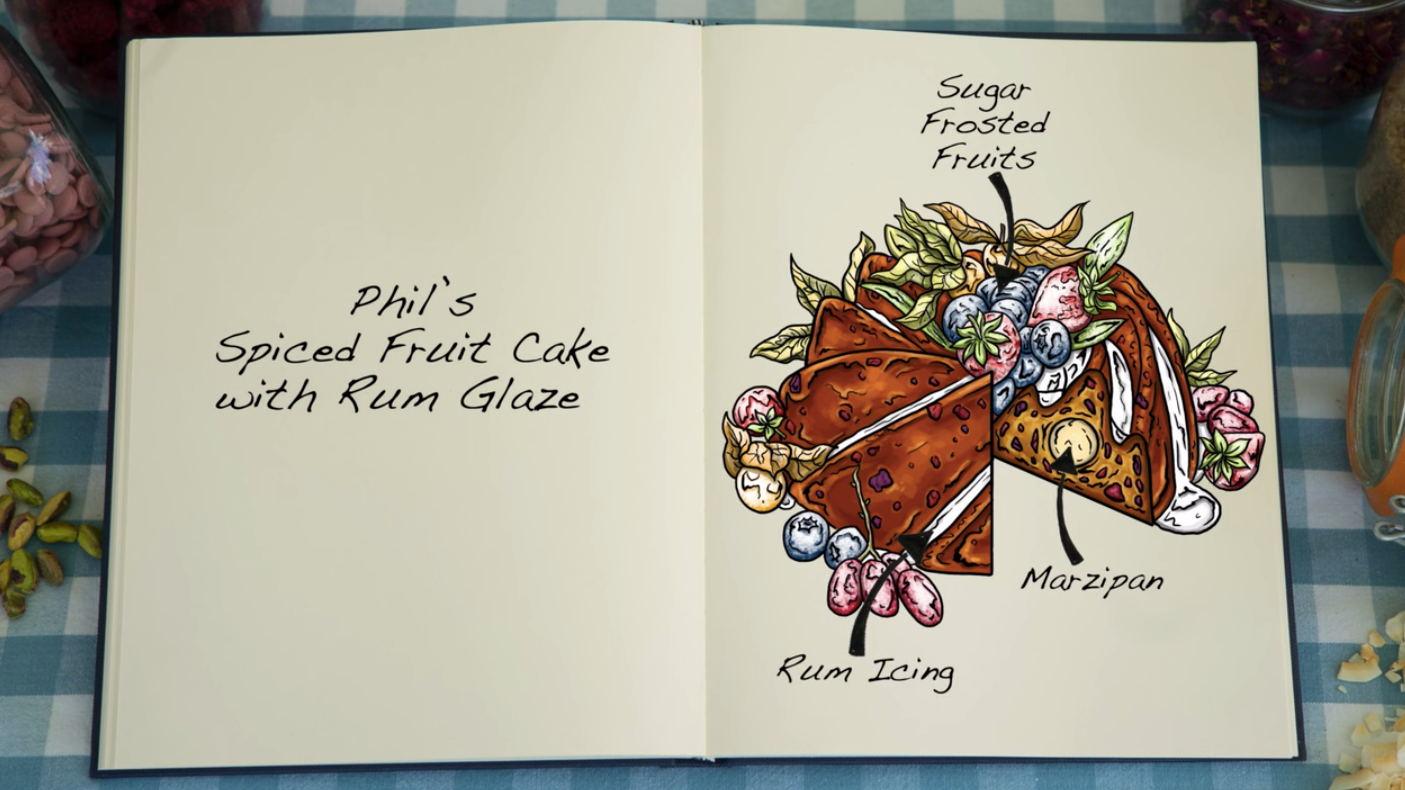 Phil's
Spiced Fruit Cake
with Rum Glaze
Sugar
Frosted
Fruits
Marzipan
Rum Icing